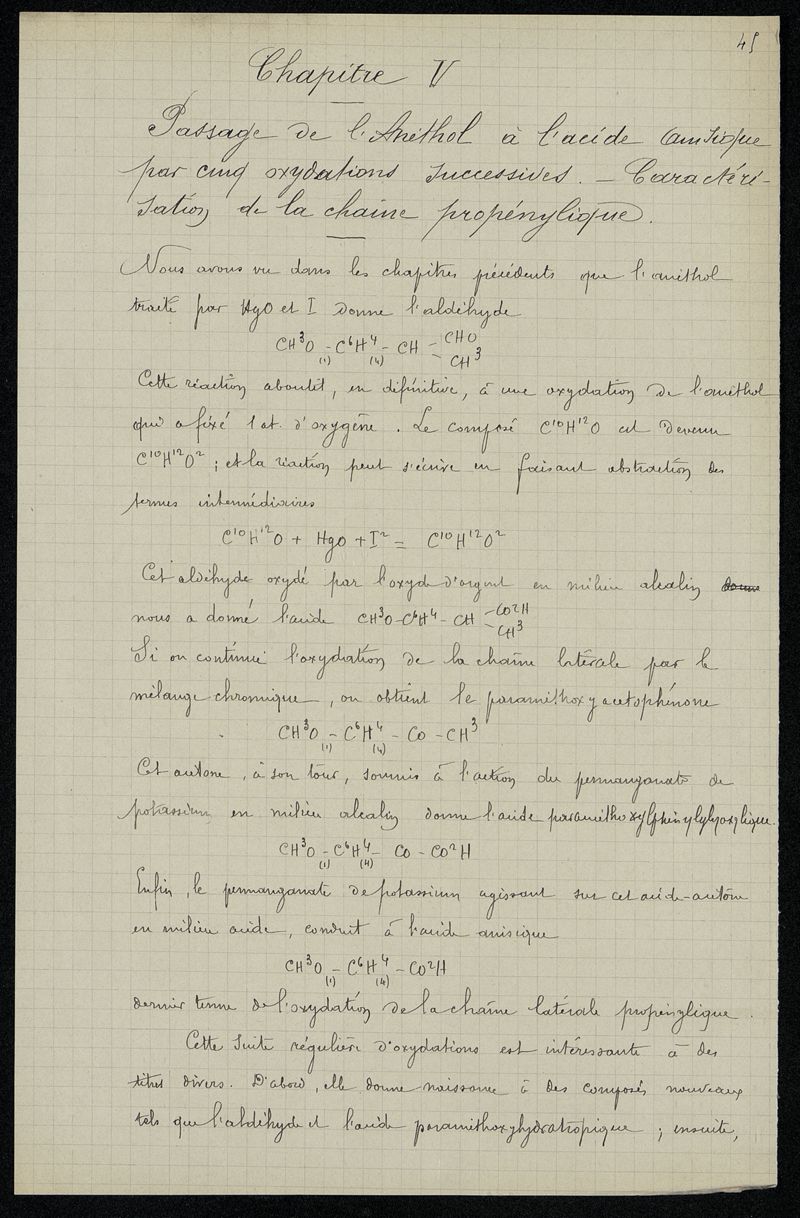 45
Chapitre V
Passage de l'Anéthol à l'acide anisique
par cinq oxydations successives. — Caractéri-
sation de la chaîne propénylique.
Nous avons vu dans les chapitres précédents que l'anéthol
traité par HgO et I donne l'aldéhyde
CH³O – C⁶H⁴ – CH – CHO
(1) (4) – CH³
Cette réaction aboutit, en définitive, à une oxydation de l'anéthol
qui a fixé 1 at. d'oxygène. Le composé C¹⁰H¹²O est devenu
C¹⁰H¹²O² ; et la réaction peut s'écrire en faisant abstraction des
termes intermédiaires
C¹⁰H¹²O + HgO + I² = C¹⁰H¹²O²
Cet aldéhyde oxydé par l'oxyde d'argent en milieu alcalin donne
nous a donné l'acide CH³O – C⁶H⁴ – CH – CO²H
– CH³
Si on continue l'oxydation de la chaîne latérale par le
mélange chromique, on obtient le paraméthoxyacétophénone
CH³O – C⁶H⁴ – CO – CH³
(1) (4)
Cet acétone, à son tour, soumis à l'action du permanganate de
potassium en milieu alcalin donne l'acide paraméthoxylphénylglyoxylique.
CH³O – C⁶H⁴ – CO – CO²H
(1) (4)
Enfin, le permanganate de potassium agissant sur cet acide-acétone
en milieu acide, conduit à l'acide anisique
CH³O – C⁶H⁴ – CO²H
(1) (4)
dernier terme de l'oxydation de la chaîne latérale propénylique.
Cette suite régulière d'oxydations est intéressante à des
titres divers. D'abord, elle donne naissance à des composés nouveaux
tels que l'aldéhyde et l'acide paraméthoxyhydratropique ; ensuite,